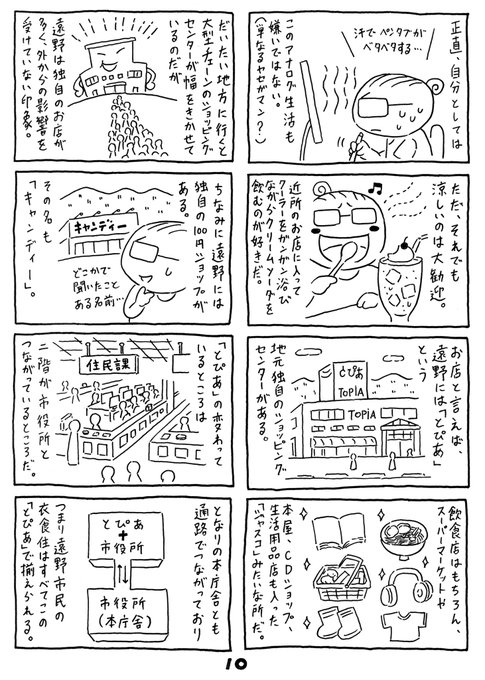 正直、自分としては
このアナログ生活も
嫌いではない。
(単なるヤセがマン?)
汗でペンタブが
ベタベタする…
ただ、それでも
涼しいのは大歓迎。
近所のお店に入って
クーラーをガンガン浴び
ながらクリームソーダを
飲むのが好きだ。
お店と言えば、
遠野には「とぴあ」
という
地元独自のショッピング
センターがある。
とぴあ
TOPIA
TOPIA
飲食店はもちろん、
スーパーマーケットや
本屋、CDショップ、
生活用品店も入った
「ジャスコ」みたいな所だ。
だいたい地方に行くと
大型チェーンのショッピング
センターが幅をきかせて
いるのだが
遠野は独自のお店が
多く、外からの影響を
受けていない印象。
ちなみに遠野には
独自の100円ショップが
ある。
キャンディー
その名も
「キャンディー」。
どこかで
聞いたこと
ある名前…
「とぴあ」の変わって
いるところは
住民課
二階が市役所と
つながっているところだ。
となりの本庁舎とも
通路でつながっており
とぴあ
+
市役所
市役所
(本庁舎)
つまり遠野市民の
衣食住はすべてこの
「とぴあ」で揃えられる。
10